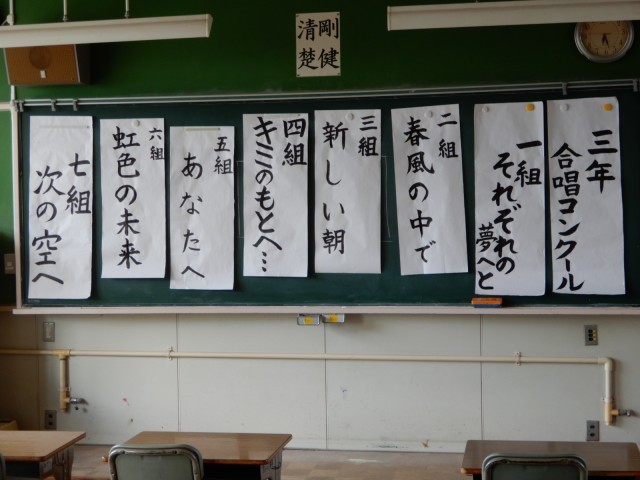 剛健
清楚
三年
合唱コンクール
一組
それぞれの
夢へと
二組
春風の中で
三組
新しい朝
四組
キミのもとへ…
五組
あなたへ
六組
虹色の未来
七組
次の空へ